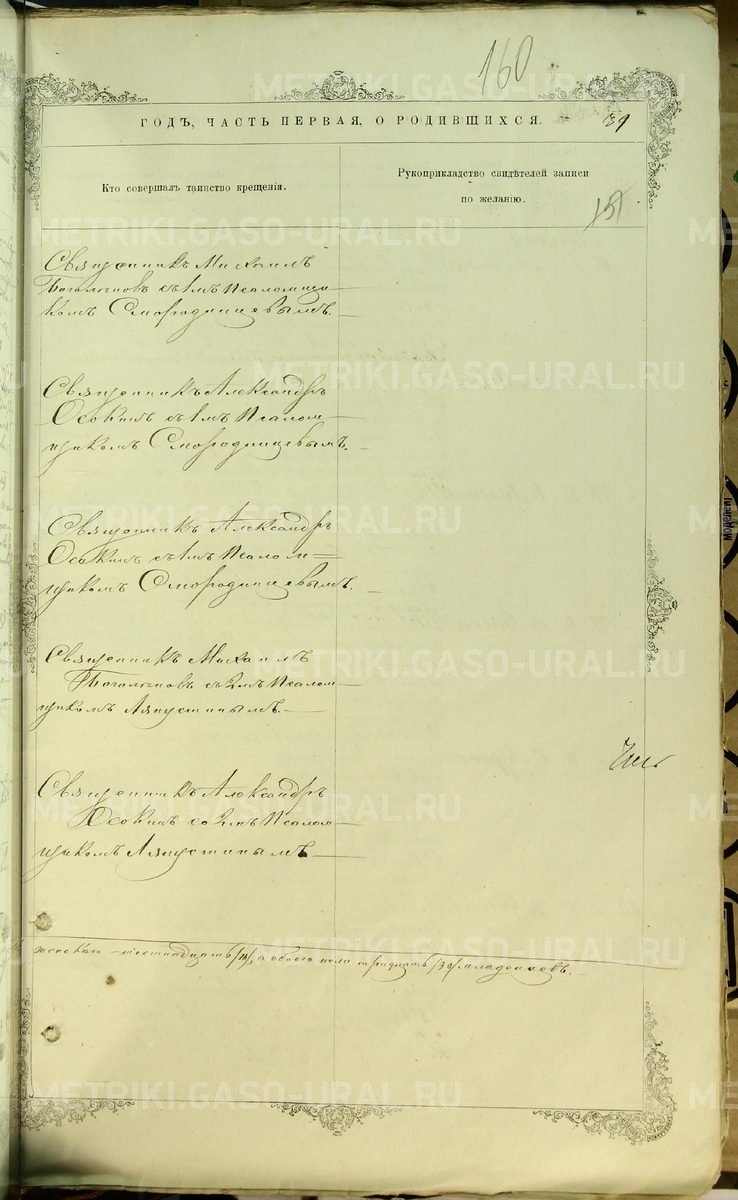 160
ГОДЪ, ЧАСТЬ ПЕРВАЯ, О РОДИВШИХСЯ.
39
Кто совершалъ таинство крещенія.
Рукоприкладство свидѣтелей записи
по желанію.
151
Священникъ Михаилъ
Боголѣповъ съ 1мъ Псаломщи-
комъ Смородинцевымъ.
Священникъ Александръ
Осокинъ съ 1мъ Псалом-
щикомъ Смородинцевымъ.
Священникъ Александръ
Осокинъ съ 1мъ Псалом=
щикомъ Смородинцевымъ.
Священникъ Михаилъ
Боголѣповъ съ 2мъ Псалом-
щикомъ Ляпустинымъ.
Священникъ Александръ
Осокинъ со 2мъ Псалом-
щикомъ Ляпустинымъ
женскаго а обоего пола тридцать /30/ младенцевъ.
METRIKI.GASO-URAL.RU